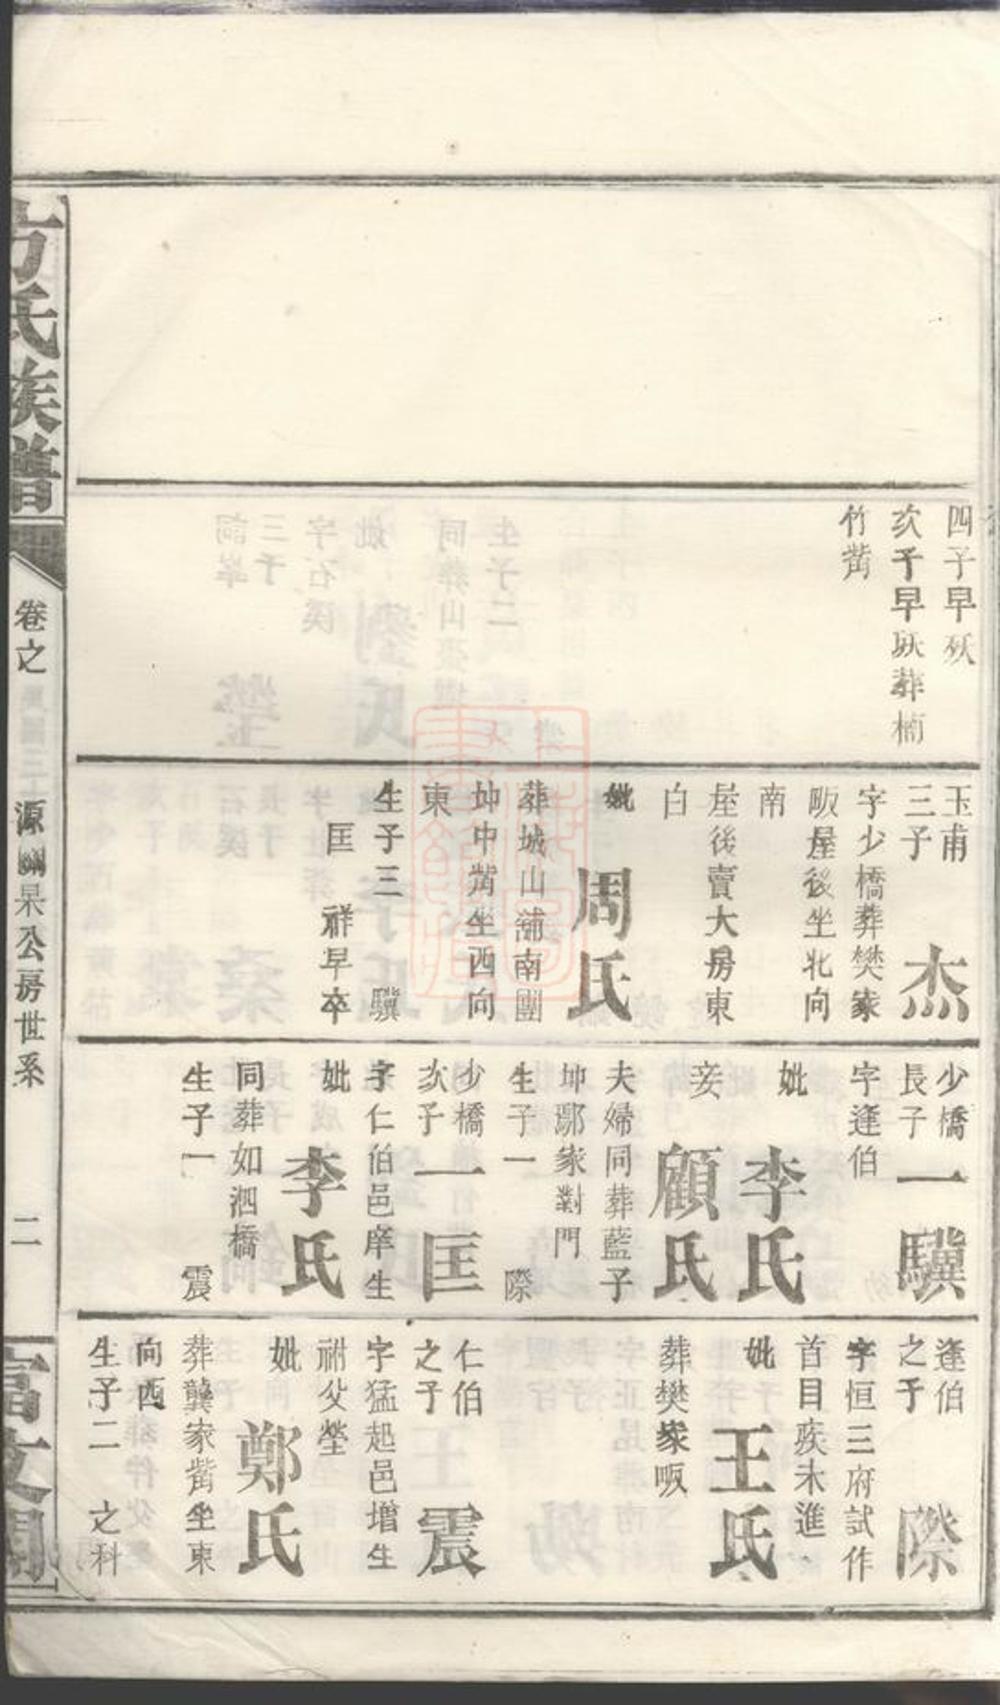 四子早殀
次子早殀葬楠
竹嘴
玉甫
三子
杰
字少橋葬樊家
畈屋後坐北向
南
屋後賣大房東
白
妣 周氏
葬城山浦南團
坤中嘴坐西向
東
生子三 驥
匡 祥早卒
少橋
長子
一驥
字逢伯
妣 李氏
妾 顧氏
夫婦同葬藍子
坤鄢家對門
生子一 際
少橋
次子
一匡
字仁伯邑庠生
妣 李氏
同葬如泗橋
生子一 震
逢伯
之子
際
字恒三府試作
首目疾未進
妣 王氏
葬樊家畈
仁伯
之子
震
字猛起邑增生
祔父塋
妣 鄭氏
葬龔家嘴坐東
向西
生子二 之科
方氏族譜
卷之
源 杲公房世系
二